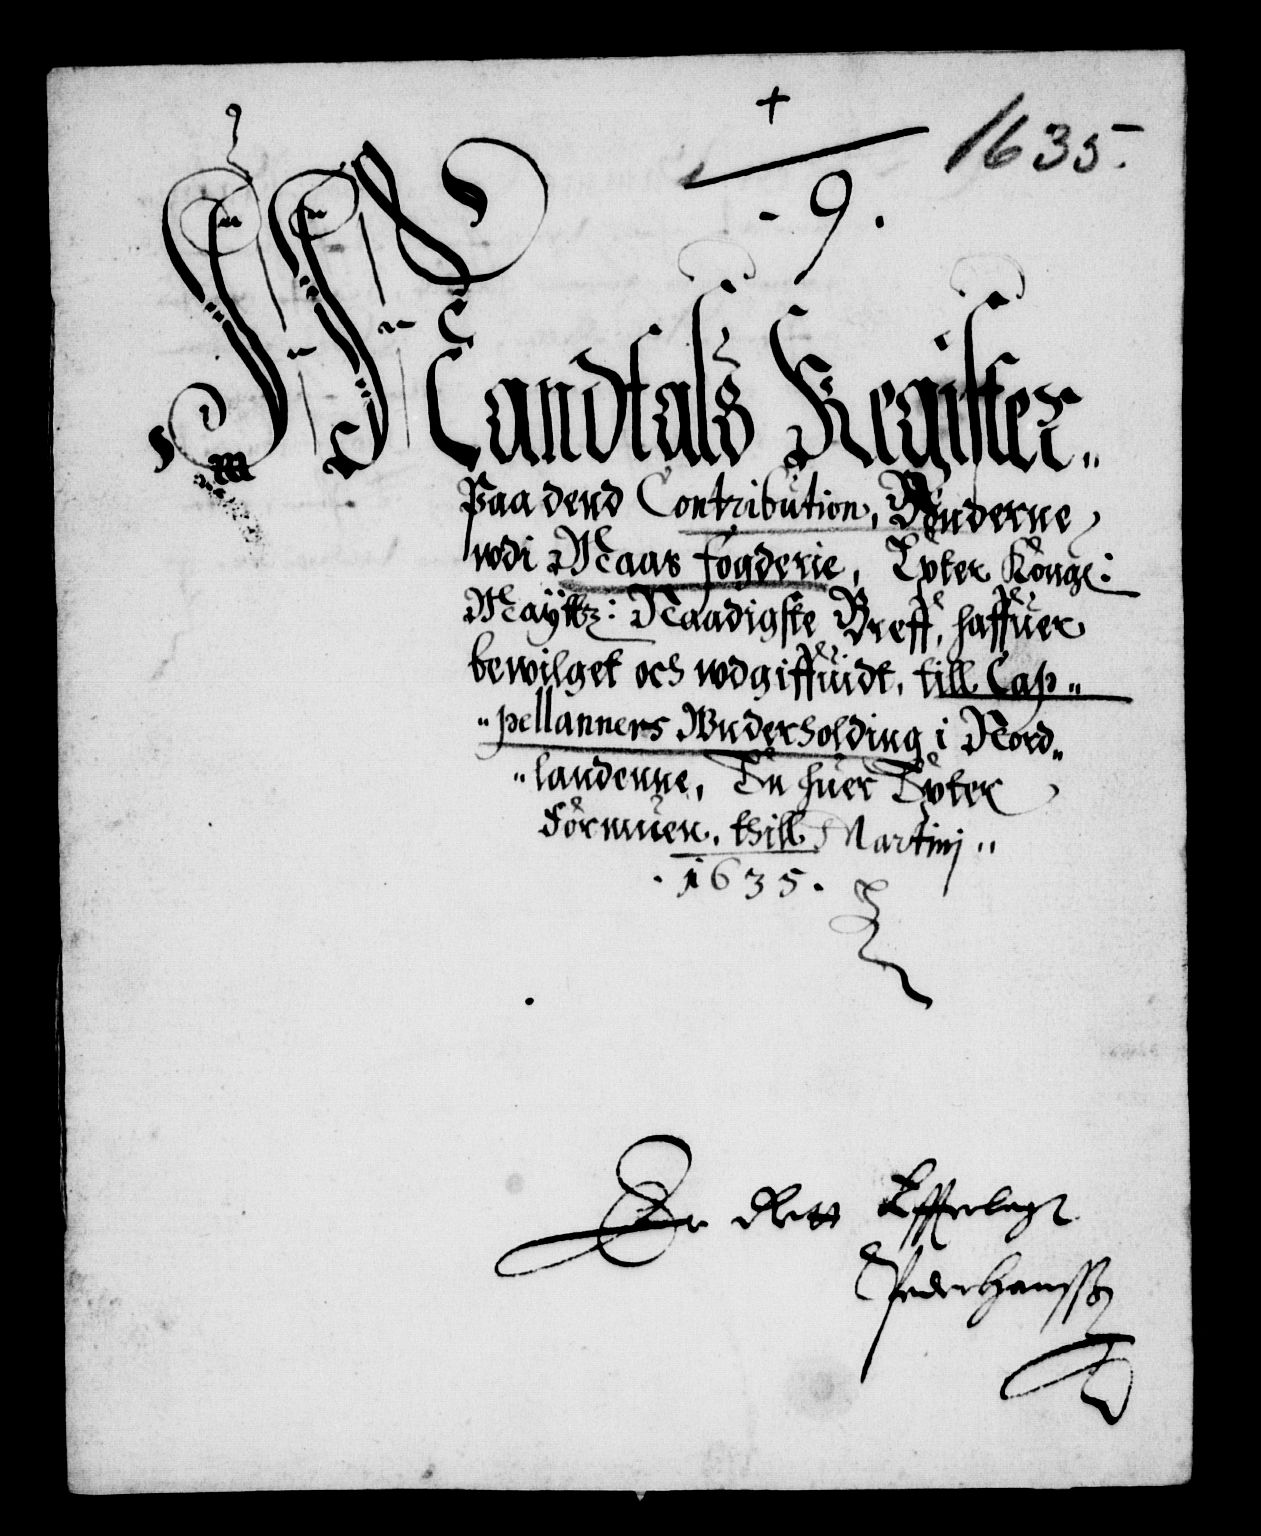 +
1635.
- 9.
Mandtals Register„
Paa dend Contribution, Bønderne
wdi Maas fogderie, Epter Kongl:
Maÿttz: Naadigste Breff, haffuer
bewilget och wdgiffuidt, till Cap„
„pellanners Wnderholding i Nord„
„landenne, En huer Epter
Formuen, thill Martinj„
. 1635 .
Er Rett Efferlagt
Peder Hanssøn